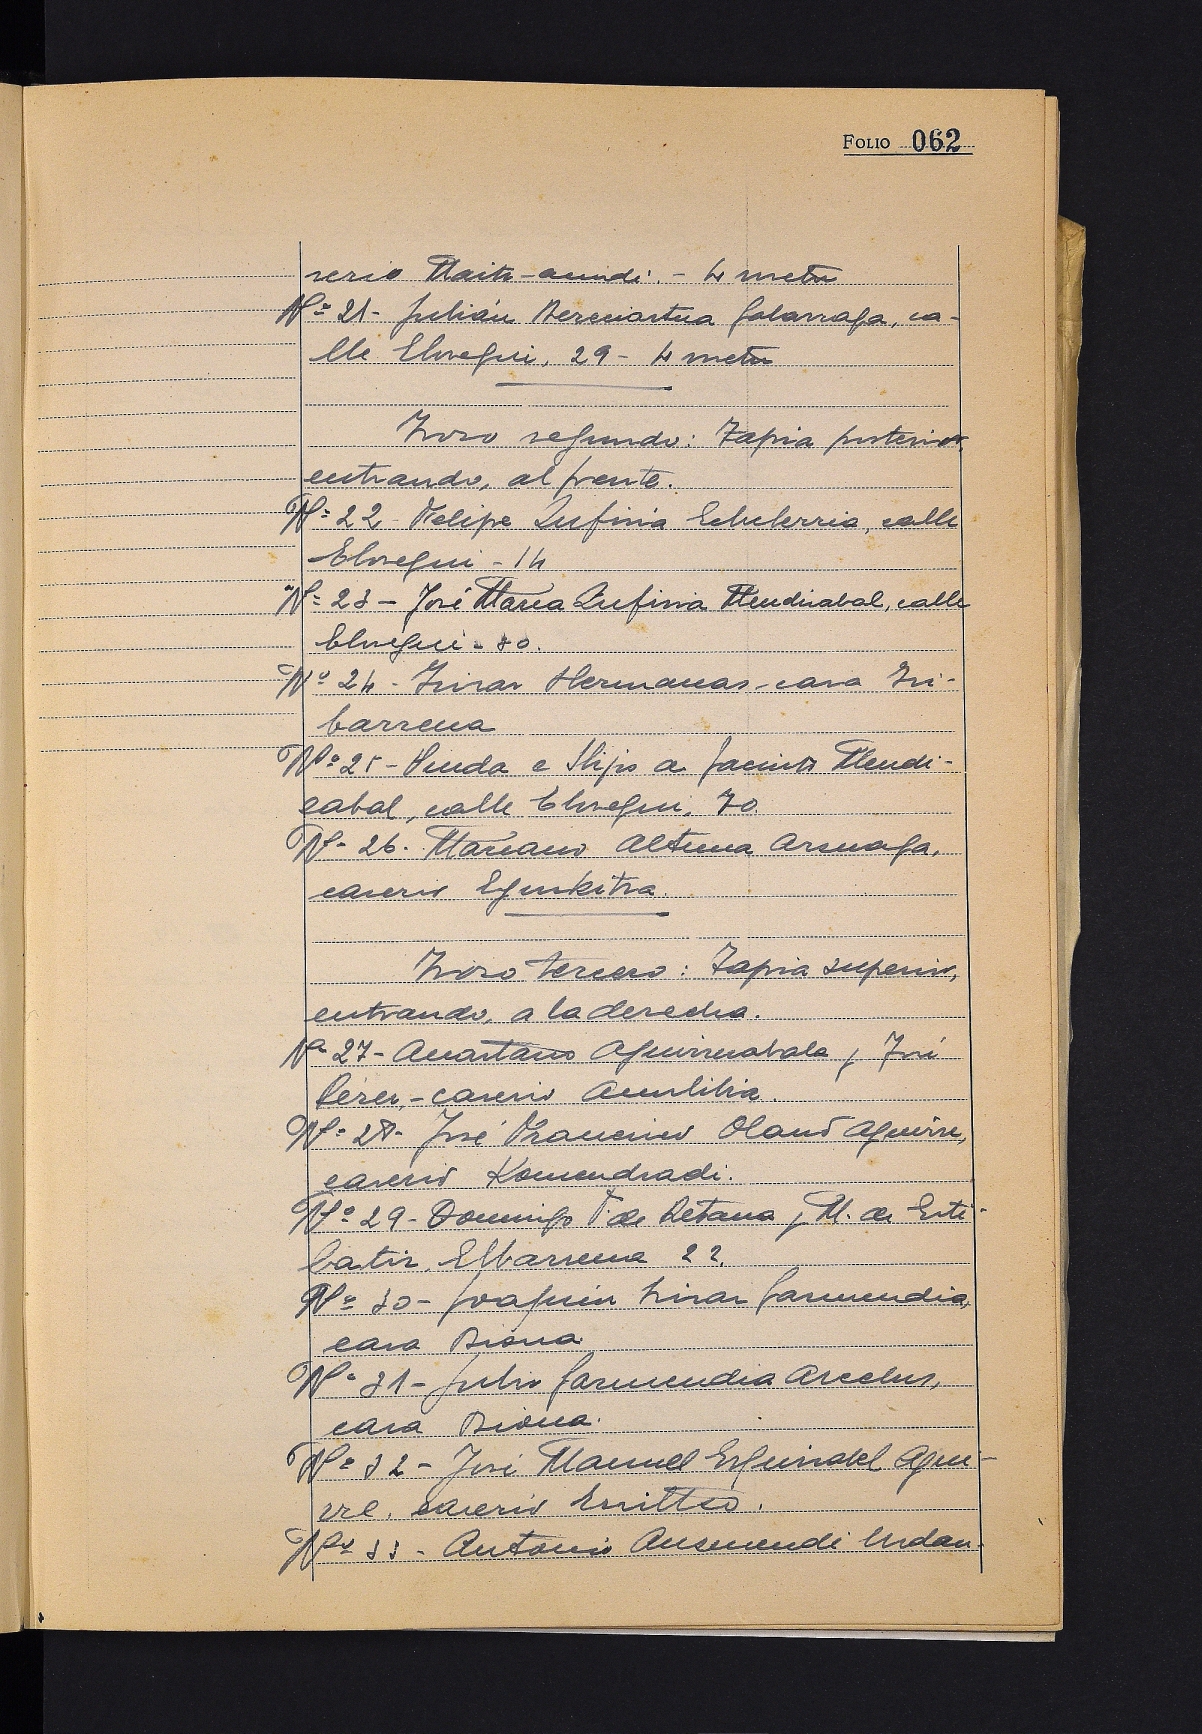 FOLIO 062
serio Maite-aundi. - 4 metro
Nº 21- Julián Bereciartua Galarraga, ca-
lle Elosegui, 29 - 4 metro
Trozo segundo: Tapia posterior,
entrando, al frente.
Nº 22 - Felipe Zufiria Echeberria, calle
Elosegui - 14
Nº 23 - José Maria Zufiria Mendizabal, calle
Elosegui - 30.
Nº 24 - Hermanas - casa Iri-
barrena
Nº 25 - Viuda e Hijos de Jacinto Mendi-
zabal, calle Elosegui, 70.
Nº 26. Mariano Altuna Arsuaga,
caserio Eguskitza.
Trozo tercero: Tapia superior,
entrando, a la derecha.
Nº 27 - Anastasio Aguirrezabala y José
Pérez, - caserio
Nº 28 - José Francisco Olano Aguirre,
caserio
Nº 29 - Domingo F. de Retana y M. de Esti-
batiz, Elbarrena 22.
Nº 30 - Joaquin Garmendia,
casa
Nº 31 - Julio Garmendia Arcelus,
casa
Nº 32 - José Manuel Esquisabel Agui-
rre, caserio
Nº 33 - Antonio Ansemendi Urdan-